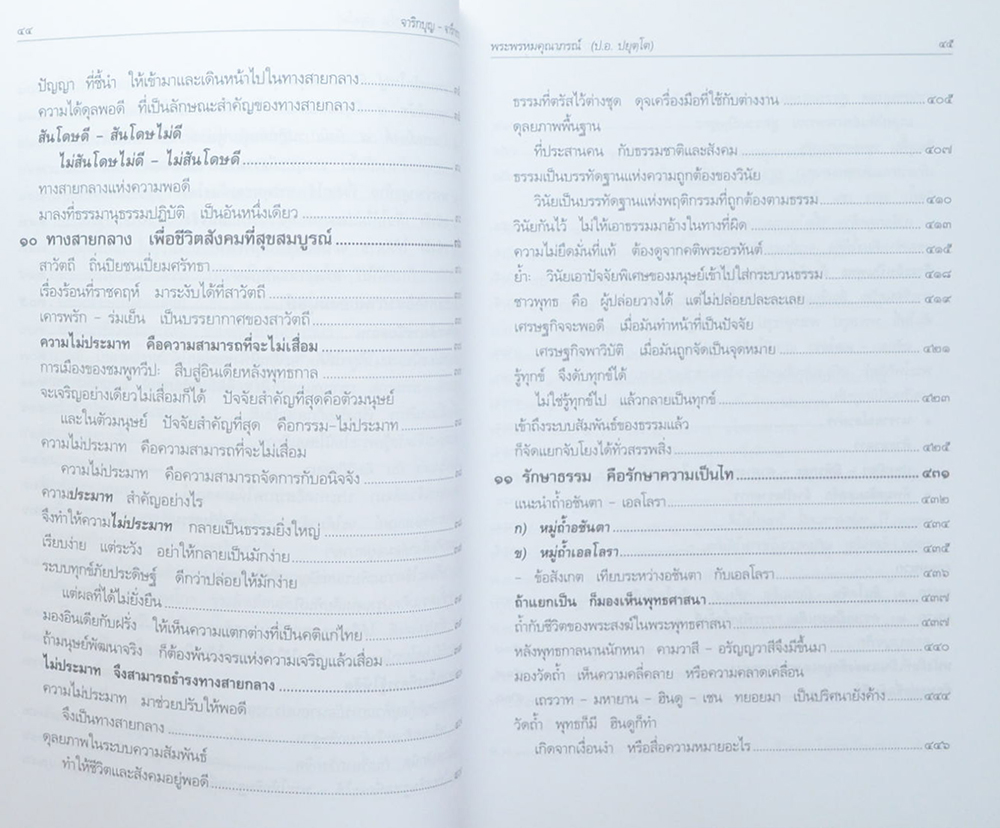 ๔๔
จาริกบุญ -
ปัญญา ที่ชี้นำ ให้เข้ามาและเดินหน้าไปในทางสายกลาง
ความได้ดุลพอดี ที่เป็นลักษณะสำคัญของทางสายกลาง
สันโดษดี - สันโดษไม่ดี
ไม่สันโดษไม่ดี - ไม่สันโดษดี
ทางสายกลางแห่งความพอดี
มาลงที่ธรรมานุธรรมปฏิบัติ เป็นอันหนึ่งเดียว
๑๐ ทางสายกลาง เพื่อชีวิตสังคมที่สุขสมบูรณ์
สาวัตถี ถิ่นปิยชนเปี่ยมศรัทธา
เรื่องร้อนที่ราชคฤห์ มาระงับได้ที่สาวัตถี
เคารพรัก - ร่มเย็น เป็นบรรยากาศของสาวัตถี
ความไม่ประมาท คือความสามารถที่จะไม่เสื่อม
การเมืองของชมพูทวีป: สืบสู่อินเดียหลังพุทธกาล
จะเจริญอย่างเดียวไม่เสื่อมก็ได้ ปัจจัยสำคัญที่สุดคือตัวมนุษย์
และในตัวมนุษย์ ปัจจัยสำคัญที่สุด คือกรรม-ไม่ประมาท
ความไม่ประมาท คือความสามารถที่จะไม่เสื่อม
ความไม่ประมาท คือความสามารถจัดการกับอนิจจัง
ความประมาท สำคัญอย่างไร
จึงทำให้ความไม่ประมาท กลายเป็นธรรมยิ่งใหญ่
เรียบง่าย แต่ระวัง อย่าให้กลายเป็นมักง่าย
ระบบทุกข์ภัยประดิษฐ์ ดีกว่าปล่อยให้มักง่าย
แต่ผลที่ได้ไม่ยั่งยืน
มองอินเดียกับฝรั่ง ให้เห็นความแตกต่างที่เป็นคติแก่ไทย
ถ้ามนุษย์พัฒนาจริง ก็ต้องพ้นวงจรแห่งความเจริญแล้วเสื่อม
ไม่ประมาท จึงสามารถธำรงทางสายกลาง
ความไม่ประมาท มาช่วยปรับให้พอดี
จึงเป็นทางสายกลาง
ดุลยภาพในระบบความสัมพันธ์
ทำให้ชีวิตและสังคมอยู่พอดี
พระพรหมคุณาภรณ์ (ป.อ. ปยุตฺโต)
๔๕
ธรรมที่ตรัสไว้ต่างชุด ดุจเครื่องมือที่ใช้กับต่างงาน ๔๐๕
ดุลยภาพพื้นฐาน
ที่ประสานคน กับธรรมชาติและสังคม ๔๐๗
ธรรมเป็นบรรทัดฐานแห่งความถูกต้องของวินัย
วินัยเป็นบรรทัดฐานแห่งพฤติกรรมที่ถูกต้องตามธรรม ๔๑๐
วินัยกันไว้ ไม่ให้เอาธรรมมาอ้างในทางที่ผิด ๔๑๓
ความไม่ยึดมั่นที่แท้ ต้องดูจากคติพระอรหันต์ ๔๑๕
ย้ำ: วินัยเอาปัจจัยพิเศษของมนุษย์เข้าไปใส่กระบวนธรรม ๔๑๘
ชาวพุทธ คือ ผู้ปล่อยวางได้ แต่ไม่ปล่อยปละละเลย ๔๑๙
เศรษฐกิจจะพอดี เมื่อมันทำหน้าที่เป็นปัจจัย
เศรษฐกิจพาวิบัติ เมื่อมันถูกจัดเป็นจุดหมาย ๔๒๑
รู้ทุกข์ จึงดับทุกข์ได้
ไม่ใช่รู้ทุกข์ไป แล้วกลายเป็นทุกข์ ๔๒๓
เข้าถึงระบบสัมพันธ์ของธรรมแล้ว
ก็จัดแยกจับโยงได้ทั่วสรรพสิ่ง ๔๒๕
๑๑ รักษาธรรม คือรักษาความเป็นไท ๔๓๑
แนะนำถ้ำอชันตา - เอลโลรา ๔๓๒
ก) หมู่ถ้ำอชันตา ๔๓๔
ข) หมู่ถ้ำเอลโลรา ๔๓๕
- ข้อสังเกต เทียบระหว่างอชันตา กับเอลโลรา ๔๓๖
ถ้าแยกเป็น ก็มองเห็นพุทธศาสนา ๔๓๗
ถ้ำกับชีวิตของพระสงฆ์ในพระพุทธศาสนา ๔๓๗
หลังพุทธกาลนานนักหนา คามวาสี - อรัญญวาสีจึงมีขึ้นมา ๔๔๐
มองวัดถ้ำ เห็นความคลี่คลาย หรือความคลาดเคลื่อน
เถรวาท - มหายาน - ฮินดู - เชน ทยอยมา เป็นปริศนายังค้าง ๔๔๔
วัดถ้ำ พุทธก็มี ฮินดูก็ทำ
เกิดจากเงื่อนงำ หรือสื่อความหมายอะไร ๔๔๖